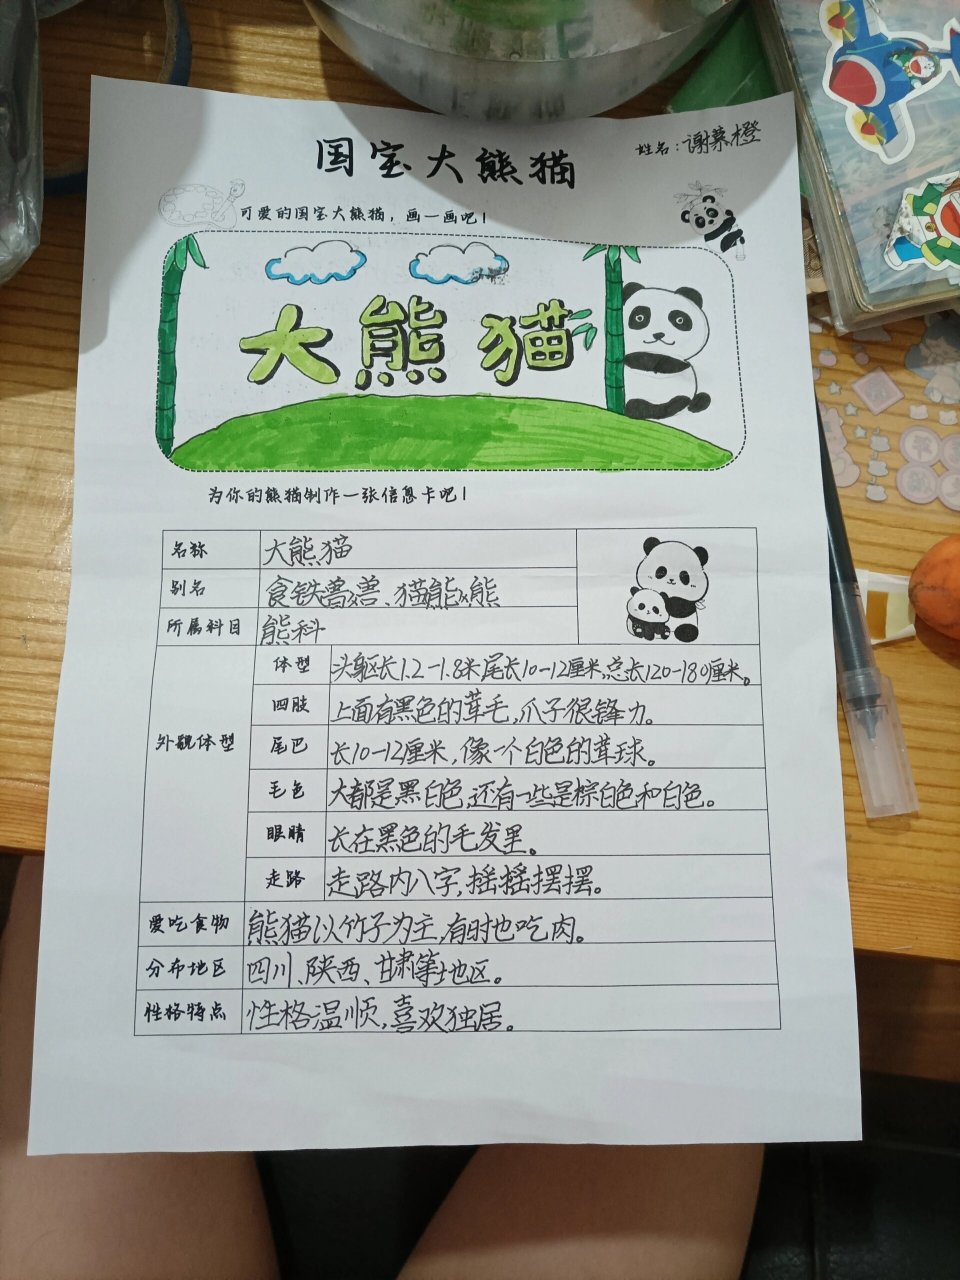 国宝大熊猫
姓名：谢慕橙
可爱的国宝大熊猫，画一画吧！
大熊猫
为你的熊猫制作一张信息卡吧！
名称 大熊猫
别名 食铁兽、猫熊
所属科目 熊科
外觀体型
体型 头躯长1.2-1.8米尾长10-12厘米,总长120-180厘米。
四肢 上面有黑色的茸毛,爪子很锋力。
尾巴 长10-12厘米,像一个白色的茸球。
毛色 大都是黑白色,还有一些是棕白色和白色。
眼睛 长在黑色的毛发里。
走路 走路内八字,摇摇摆摆。
爱吃食物 熊猫以竹子为主,有时也吃肉。
分布地区 四川、陕西、甘肃等地区。
性格特点 性格温顺,喜欢独居。